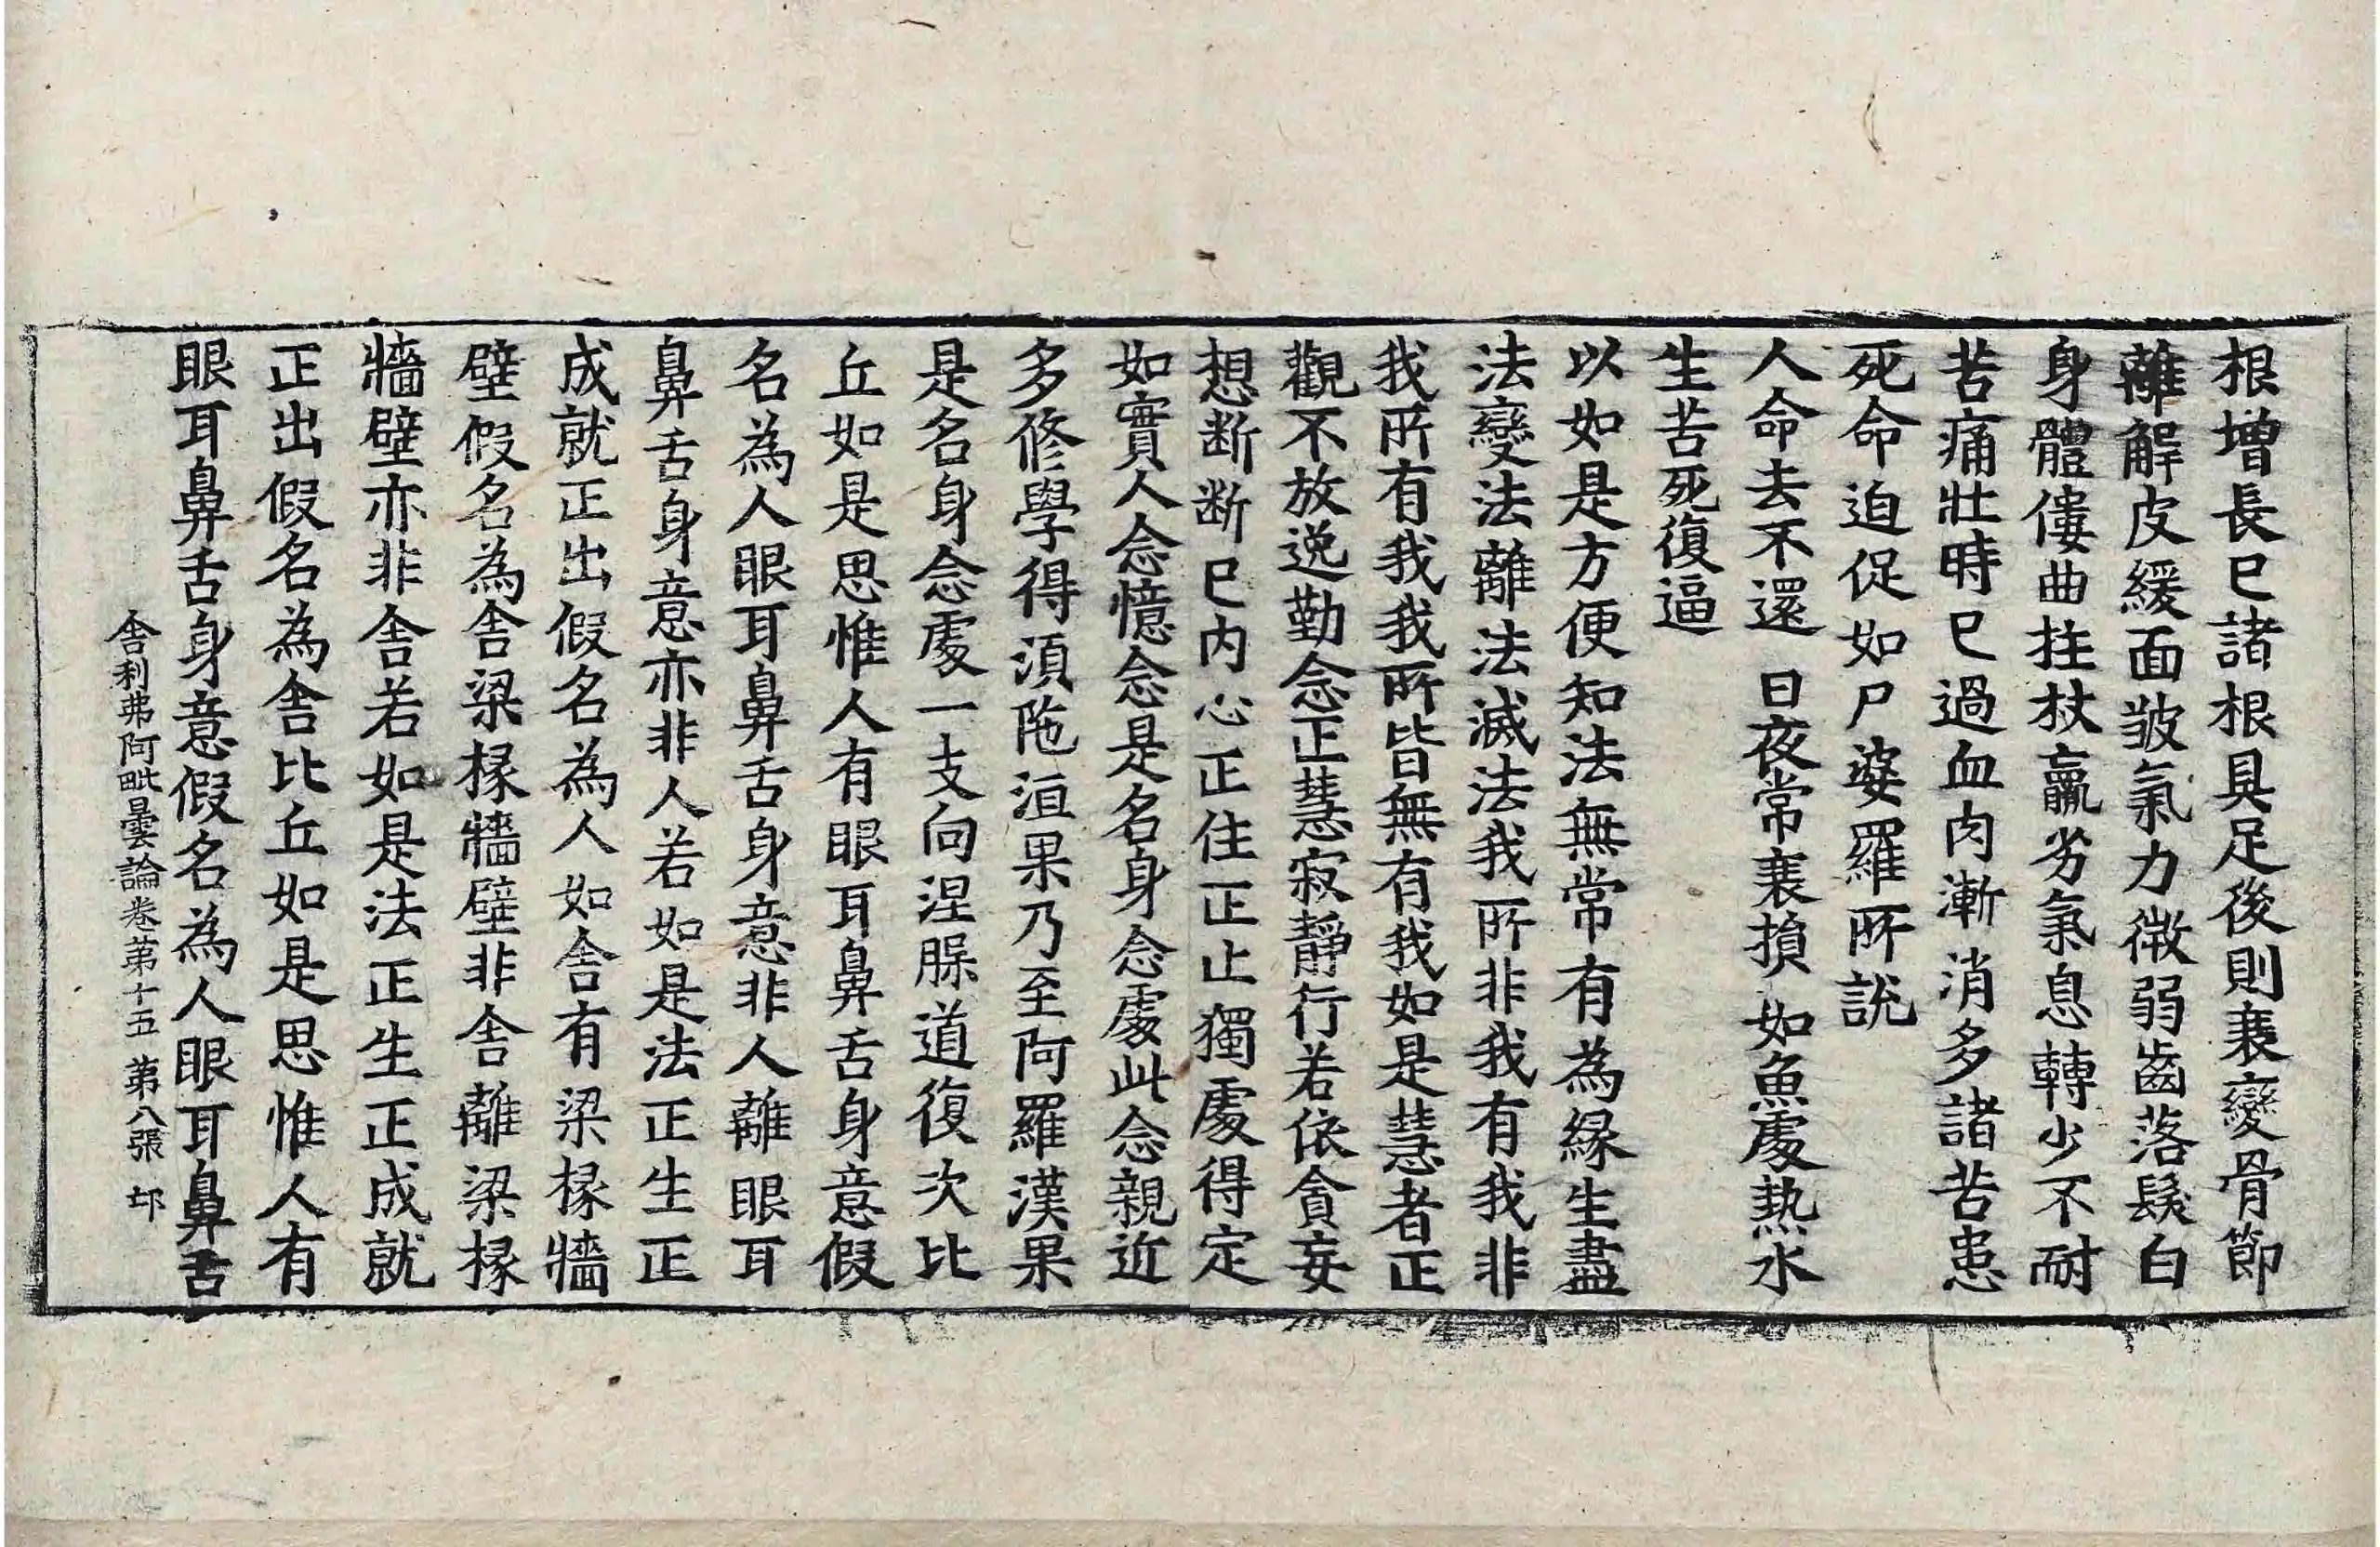 根增長已諸根具足後則衰變骨節
離解皮緩面皺氣力微弱齒落髮白
身體僂曲拄杖羸劣氣息轉少不耐
苦痛壯時已過血肉漸消多諸苦患
死命迫促如尸婆羅所說
人命去不還　日夜常衰損　如魚處熱水
生苦死復逼
以如是方便知法無常有為緣生盡
法變法離法滅法我所非我有我非
我所有我我所皆無有我如是慧者正
觀不放逸勤念正慧寂靜行若依貪妄
想断断已内心正住正止獨處得定
如實人念憶念是名身念處此念親近
多修學得須陁洹果乃至阿羅漢果
是名身念處一支向涅槃道復次比
丘如是思惟人有眼耳鼻舌身意假
名為人眼耳鼻舌身意非人離眼耳
鼻舌身意亦非人若如是法正生正
成就正出假名為人如舍有梁椽牆
壁假名為舍梁椽牆壁非舍離梁椽
牆壁亦非舍若如是法正生正成就
正出假名為舍比丘如是思惟人有
眼耳鼻舌身意假名為人眼耳鼻舌
舍利弗阿毗曇論卷第十五　第八張　邙